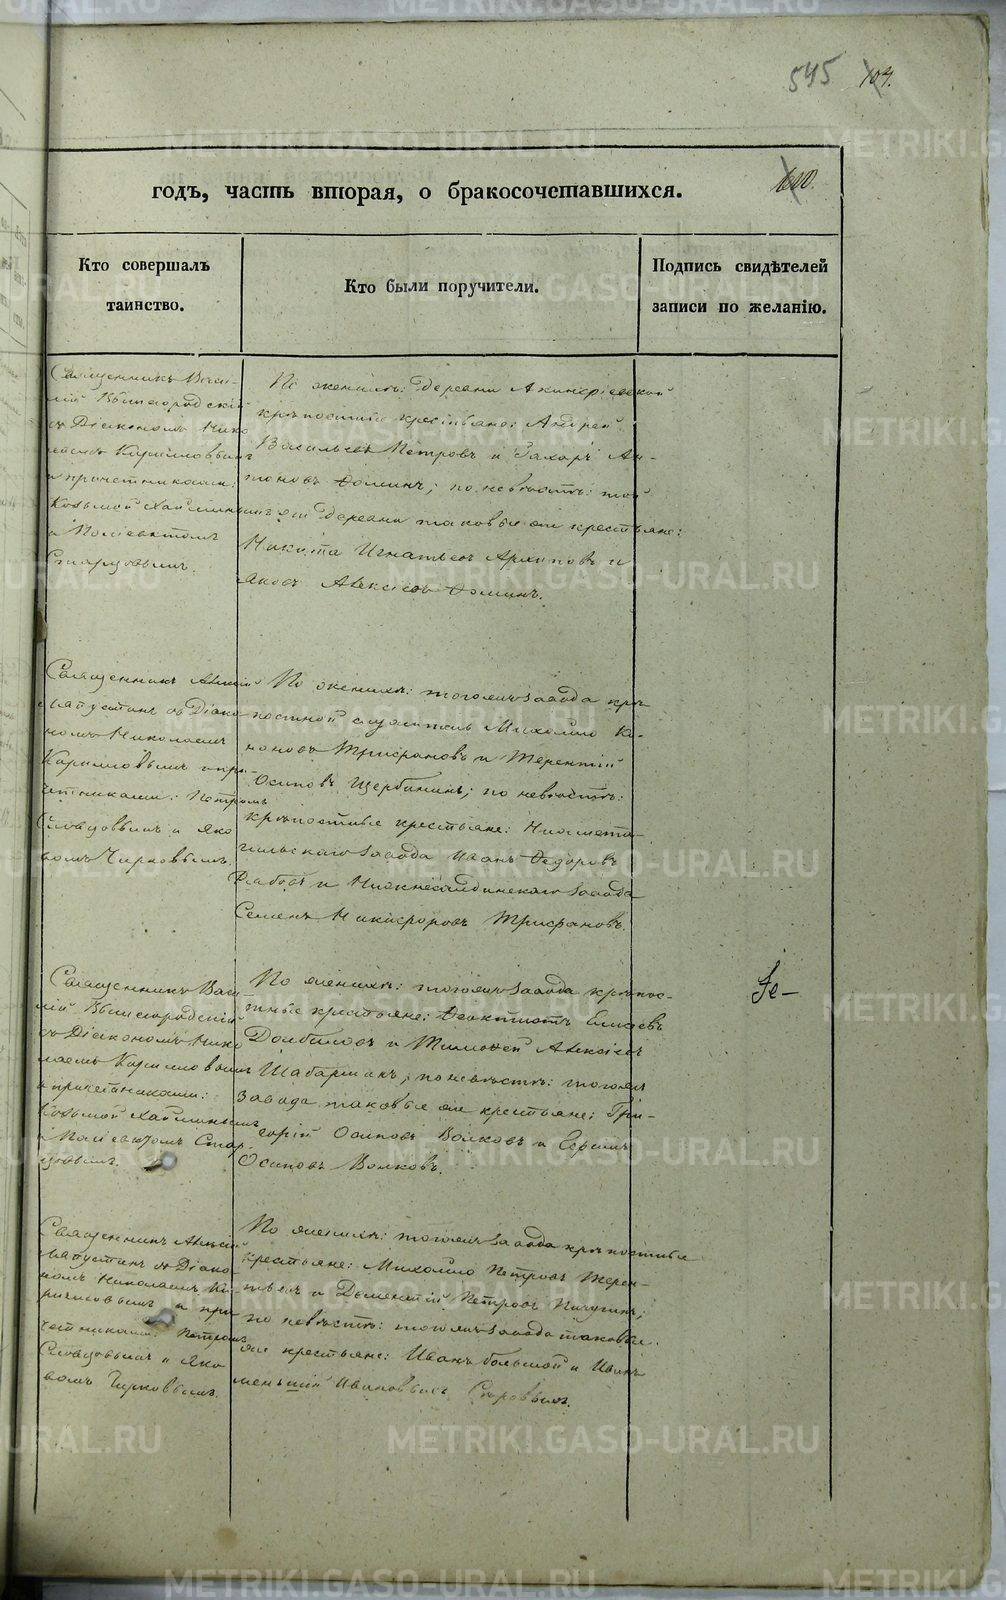 545 107.
METRIKI.GASO-URAL.RU
годъ, часть вторая, о бракосочетавшихся.
Кто совершалъ
таинство.
Кто были поручители.
Подпись свидѣтелей
записи по желанію.
Священникъ Васи-
лій Вышегородскій
съ Діакономъ Нико
лаемъ Кирилловымъ
и причетниками:
Козьмой Хайминымъ
и Поліевктомъ
Старцовымъ.
По женихѣ: деревни Акинфіевской
крѣпостные крестьяне: Андрей
Васильевъ Петровъ и Захаръ Ан-
тоновъ Ѳоминъ; по невѣстѣ: той
же деревни таковые же крестьяне:
Никита Игнатьевъ Архиповъ и
Яковъ Алексіевъ Ѳоминъ.
Священникъ Алексій
Лапустинъ съ Діако
номъ Николаемъ
Кирилловымъ и при-
четниками: Петромъ
Словцовымъ и Яко
вомъ Чирковымъ.
По женихѣ: тогоже завода крѣ
постной служитель Михайло
Трифановъ и Терентій
Осиповъ Щербининъ; по невѣстѣ:
крѣпостные крестьяне: Нижнета-
гильскаго завода Иванъ Ѳедоровъ
и Нижнесалдинскаго завода
Семенъ Никифоровъ Трифановъ.
Священникъ Васи-
лій Вышегородскій
съ Діакономъ Нико
лаемъ Кирилловымъ
и причетниками:
Козьмой Хайминымъ
и Поліевктомъ Стар
цовымъ.
По женихѣ: тогоже завода крѣпос-
тные крестьяне: Ѳеоктистъ Елисѣевъ
Долбиловъ и Тимоѳей Алексіевъ
по невѣстѣ: тогоже
завода таковые же крестьяне: Гри-
горій Осиповъ Волковъ и Ефимъ
Осиповъ Волковъ.
Священникъ Алексій
Лапустинъ съ Діако
номъ Николаемъ Ки-
рилловымъ и при
четниками: Петромъ
Словцовымъ и Яко
вомъ Чирковымъ.
По женихѣ: тогоже завода крѣпостные
крестьяне: Михайло Петровъ Терен-
тьевъ и Дементій Петровъ Пичугинъ;
по невѣстѣ: тогоже завода таковые
же крестьяне: Иванъ большой и Иванъ
меньшій Ивановы